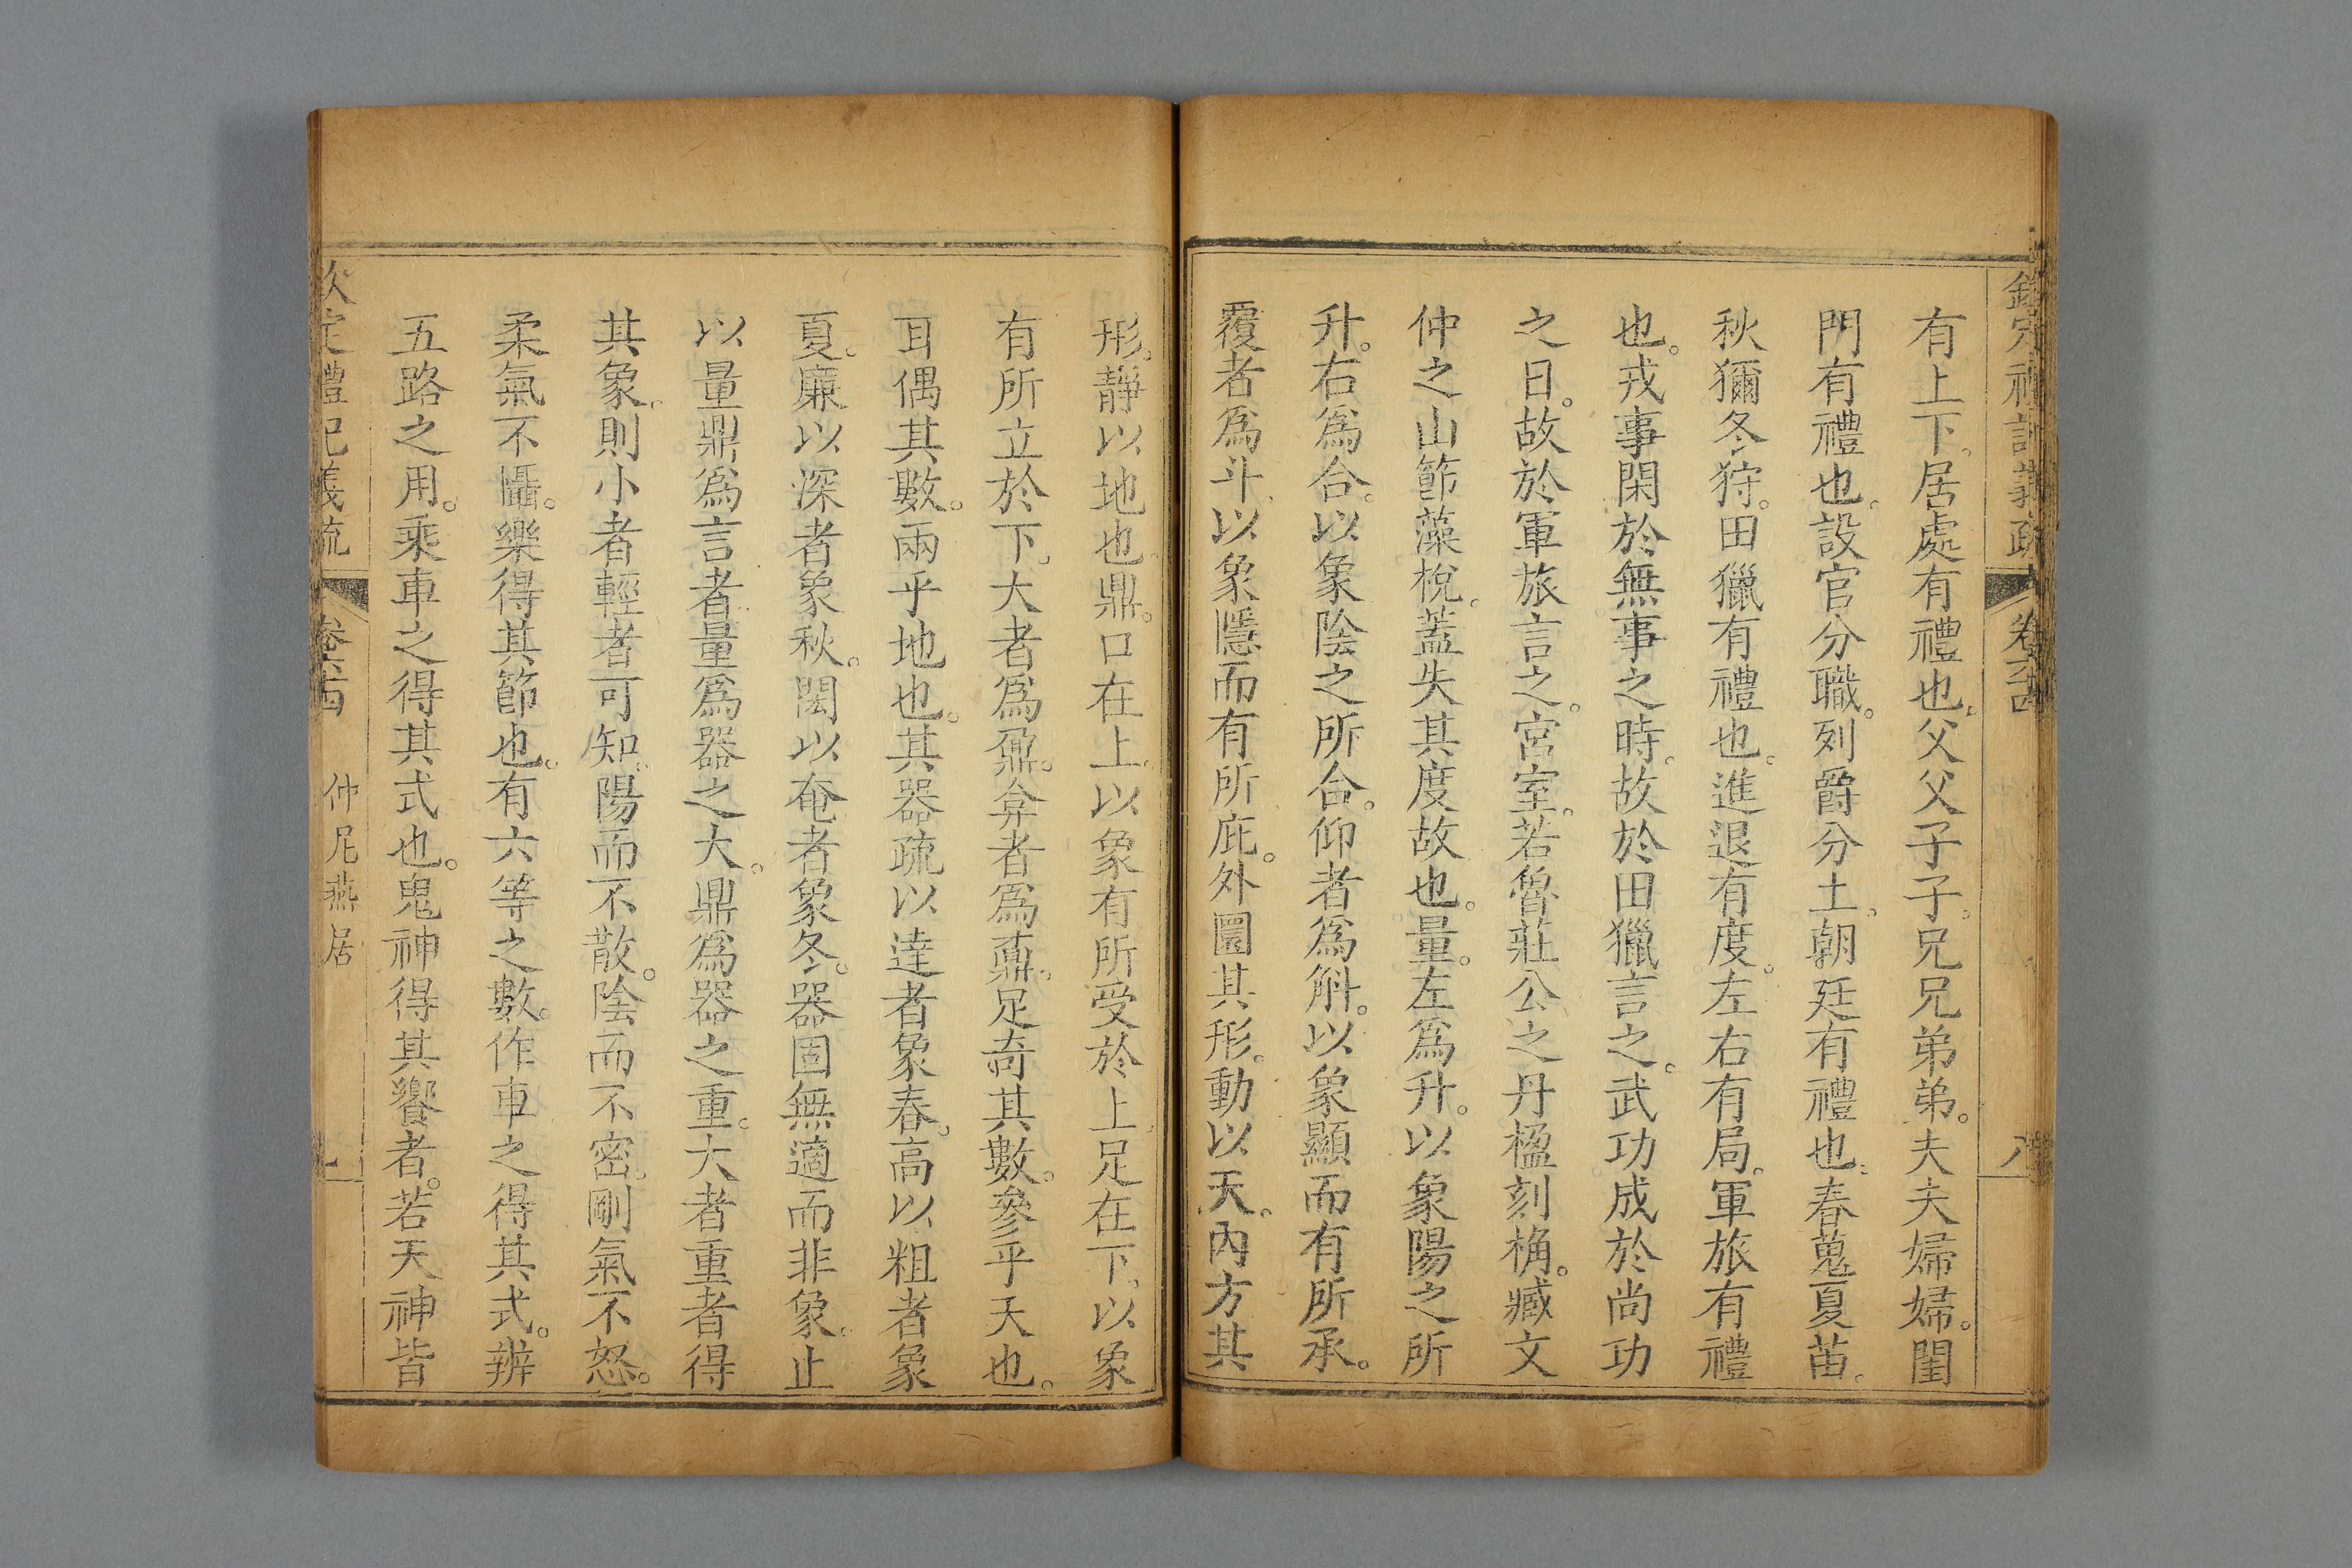 欽定禮記義疏 卷六十四 八
有上下居處有禮也父父子子兄兄弟弟。夫夫婦婦。閨
門有禮也。設官分職。列爵分土。朝廷有禮也。春蒐夏苗。
秋獮冬狩。田獵有禮也。進退有度。左右有局。軍旅有禮
也。戎事閑於無事之時。故於田獵言之。武功成於尚功
之日。故於軍旅言之。宮室。若魯莊公之丹楹刻桷。臧文
仲之山節藻梲。蓋失其度故也。量。左爲升。以象陽之所
升。右爲合。以象陰之所合。仰者爲斛。以象顯而有所承。
覆者爲斗。以象隱而有所庇。外圜其形。動以天。內方其
形。靜以地也。鼎。口在上。以象有所受於上。足在下。以象
有所立於下。大者爲鼐。弇者爲鼒。足奇其數。參乎天也。
耳偶其數。兩乎地也。其器疏以達者象春。高以粗者象
夏。廉以深者象秋。閎以奄者象冬。器固無適而非象。止
以量鼎爲言者。量爲器之大。鼎爲器之重。大者重者得
其象。則小者輕者可知。陽而不散。陰而不密。剛氣不怒。
柔氣不懾。樂得其節也。有六等之數。作車之得其式。辨
五路之用。乘車之得其式也。鬼神得其饗者。若天神皆
欽定禮記義疏 卷六十四 仲尼燕居